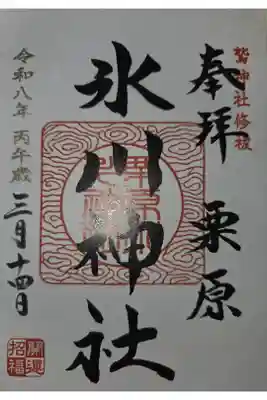 鷲神社修祓
奉拝 栗原
氷川神社
令和八年 丙午歳 三月十四日
開運
招福